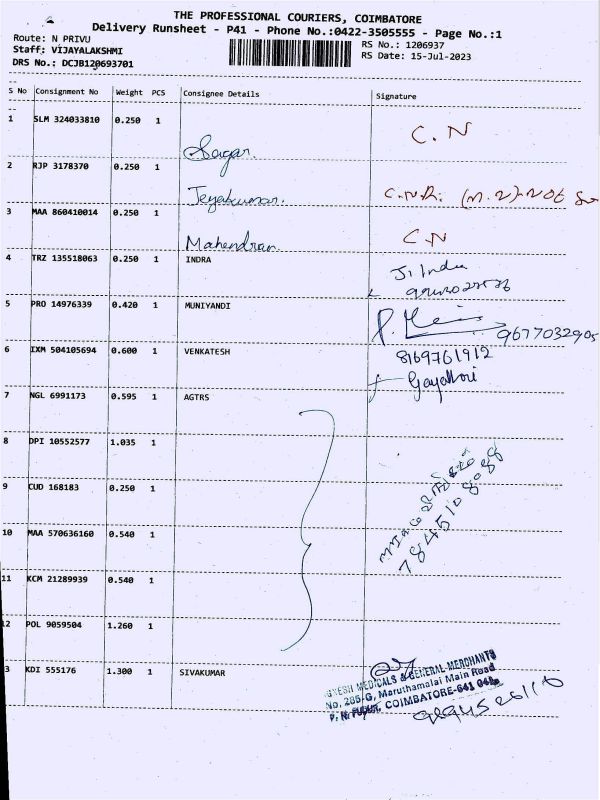 THE PROFESSIONAL COURIERS, COIMBATORE
Delivery Runsheet - P41 - Phone No.:0422-3505555 - Page No.:1
Route: N PRIVU
RS No.: 1206937
Staff: VIJAYALAKSHMI
RS Date: 15-Jul-2023
DRS No.: DCJB120693701
S No Consignment No Weight PCS Consignee Details Signature
1 SLM 324033810 0.250 1 Sagar. C.N
2 RJP 3178370 0.250 1 Jeyakumar. C.N.R.
3 MAA 860410014 0.250 1 Mahendran. C N
4 TRZ 135518063 0.250 1 INDRA J. Indu
5 PRO 14976339 0.420 1 MUNIYANDI P. 9677032905
6 IXM 504105694 0.600 1 VENKATESH 8169761912
Gayathri
7 NGL 6991173 0.595 1 AGTRS
8 DPI 10552577 1.035 1
9 CUD 168183 0.250 1
10 MAA 570636160 0.540 1
11 KCM 21289939 0.540 1
12 POL 9059504 1.260 1
3 KDI 555176 1.300 1 SIVAKUMAR
MEDICALS & GENERAL MERCHANTS
No. 285-G, Maruthamalai Main Road
P. N. PUDUR, COIMBATORE-641 041.